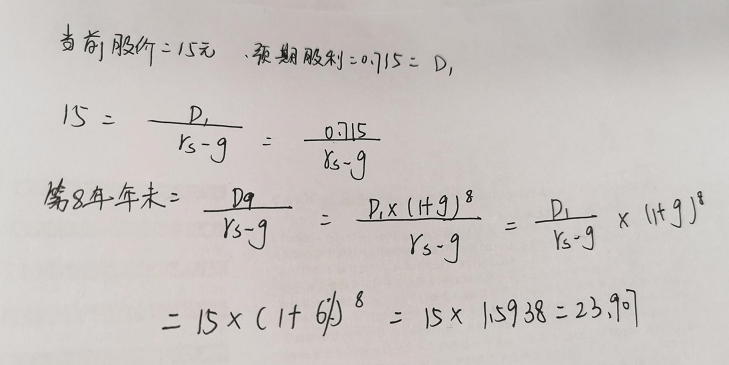 当前股价=15元、预期股利=0.715= D₁
15 = D₁/(rs-g) = 0.715/(rs-g)
第8年年末= D9/(rs-g) = D₁×(1+g)⁸/(rs-g) = D₁/(rs-g) × (1+g)⁸
= 15×(1+6%)⁸ = 15×1.5938=23.907